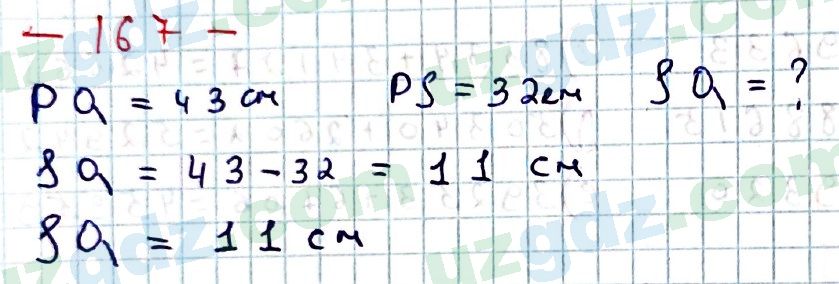 - 167 -
PQ = 43 см PS = 32 см SQ = ?
SQ = 43 - 32 = 11 см
SQ = 11 см
uzgdz.com